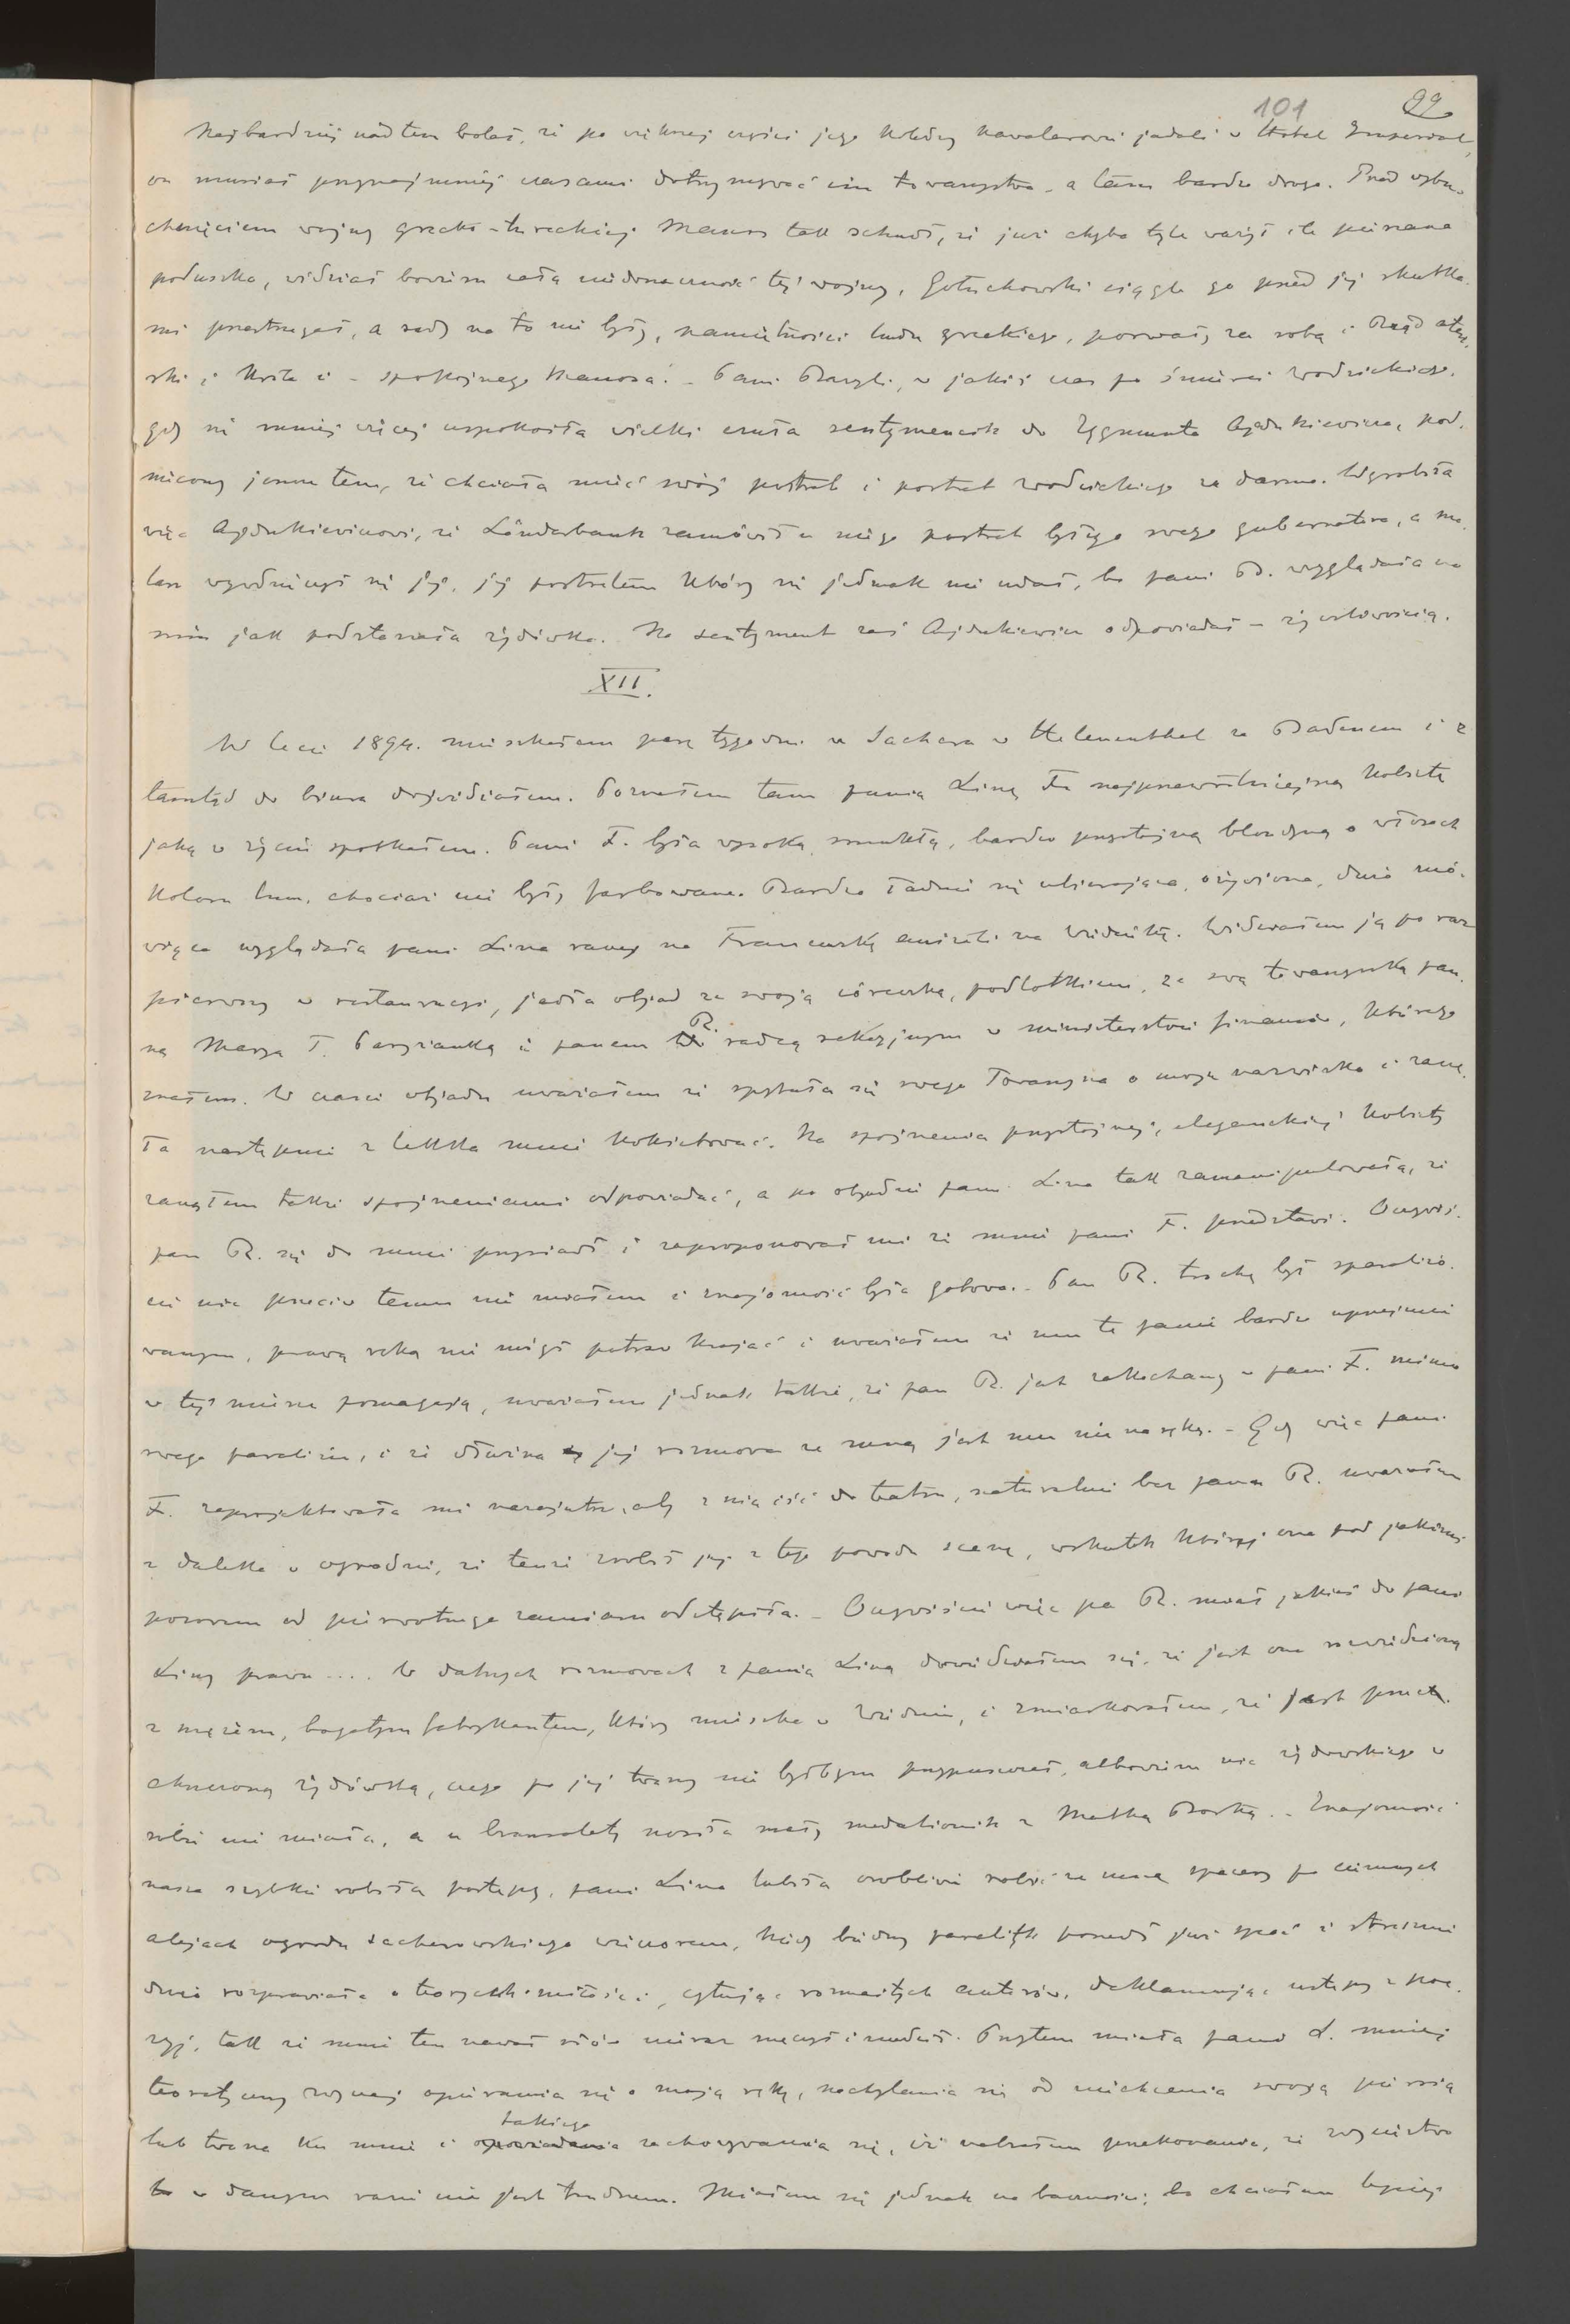 101 99
Najbardziej nad tem bolał, że po większej części jego koledzy kawalerowie jadali w Hotel Imperial,
on musiał przynajmniej czasami dotrzymywać im towarzystwa, a tam bardzo drogo. Przed wybu-
chnięciem wojny grecko-tureckiej Manos tak schudł, że już chyba tyle ważył ile pierzana
poduszka, widział bowiem całą niedorzeczność tej wojny, Gołuchowski ciągle go przed jej skutka-
mi przestrzegał, a rady na to nie było, namiętności ludu greckiego, porwały za sobą i Rząd ateń-
ski i Króla i - spokojnego Manosa. - Pani w jakiś czas po śmierci Wodzickiego,
gdy się mniej więcej uspokoiła wielki czuła sentymencik do Zygmunta Ajdukiewicza, pod-
niecony jeszcze tem, że chciała mieć swój portret i portret Wodzickiego za darmo. Wyrobiła
więc Ajdukiewiczowi, że Länderbank zamówił u niego portret byłego swego gubernatora, a ma-
larz wywdzięczył się jej, jej portretem który się jednak nie udał, bo pani B. wyglądała na
nim jak podstarzała żydówka. Na sentyment zaś Ajdukiewicz odpowiadał - życzliwością.
XII.
W lecie 1894. mieszkałem parę tygodni u Sachera w Helenenthal za Badenem i z
tamtąd do biura dojeżdżałem. Poznałem tam panią Linę F. najprzewrotniejszą kobietę
jaką w życiu spotkałem. Pani F. była wysoką, smukłą, bardzo przystojną blondyną o włosach
koloru lnu, chociaż nie były farbowane. Bardzo ładnie się ubierająca, ożywiona, dużo mó-
wiąca wyglądała pani Lina raczej na Francuzkę aniżeli na Wiedenkę. Widziałem ją po raz
pierwszy w restauracyi, jadła objad ze swoją córeczką, podlotkiem, ze swą towarzyszką pan-
ną Maryą T. Paryżanką i panem R. radcą sekcyjnym w ministerstwie finansów, którego
znałem. W czasie objadu uważałem że spytała się swego Towarzysza o moje nazwisko i zaczę-
ła następnie z lekka mnie kokietować. Na spojrzenia przystojnej, eleganckiej kobiety
zacząłem także spojrzeniami odpowiadać, a po objedzie pani Lina tak zamanipulowała, że
pan R. się do mnie przysiadł i zaproponował mi że mnie pani F. przedstawi. Oczywiś-
cie nic przeciw temu nie miałem i znajomość była gotowa. - Pan R. trochę był sparaliżo-
wanym, prawą ręką nie mógł potraw krajać i uważałem że mu te panie bardzo uprzejmie
w tej mierze pomagają, uważałem jednak także, że pan R. jest zakochany w pani F. mimo
swego paraliżu, i że ożywiona jej rozmowa ze mną jest mu nie na rękę. - Gdy więc pani
F. zaprojektowała mi nazajutrz, aby z nią iść do teatru, naturalnie bez pana R. uważałem
z daleka w ogrodzie, że tenże zrobił jej z tego powodu scenę, wskutek której ona pod jakimś
pozorem od pierwotnego zamiaru odstąpiła. - Oczywiście więc pan R. miał jakieś do pani
Liny prawa .... W dalszych rozmowach z panią Liną dowiedziałem się, że jest ona rozwiedzioną
z mężem, bogatym fabrykantem, który mieszka w Wiedniu, i zmiarkowałem, że jest przech-
chrzczoną żydówką, czego po jej twarzy nie byłbym przypuszczał, albowiem nic żydowskiego w
sobie nie miała, a u bransolety nosiła mały medalionik z Matką Boską. - Znajomość
nasza szybkie robiła postępy, pani Lina lubiła osobliwie robić ze mną spacery po ciemnych
alejach ogrodu sacherowskiego wieczorem, kiedy biedny paralityk poszedł już spać i strasznie
dużo rozprawiała o teoryach miłości, cytując rozmaitych autorów, deklamując ustępy z poe-
zyj, tak że mnie ten nawał słów nieraz męczył i nudził. Przytem miała pani L. mniej
teoretyczny zwyczaj opierania się o moją rękę, nachylania się od niechcenia swoją piersią
lub twarzą ku mnie i takiego zachowywania się, iż nabrałem przekonania, że zwycięstwo
w danym razie nie jest trudnem. Miałem się jednak na baczności, bo chciałem lepiej